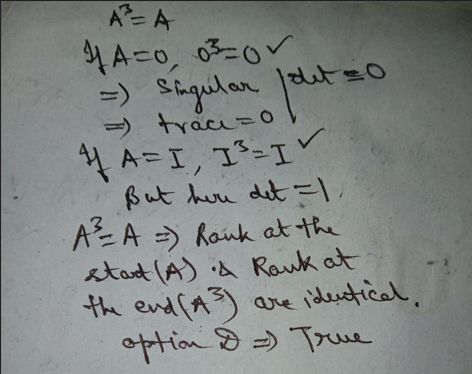 A³ = A
If A=0, 0³=0 ✓
⇒ Singular | det = 0
⇒ trace = 0
If A = I, I³ = I ✓
But here det = 1.
A³ = A ⇒ Rank at the
start (A) & Rank at
the end (A³) are identical.
option D ⇒ True